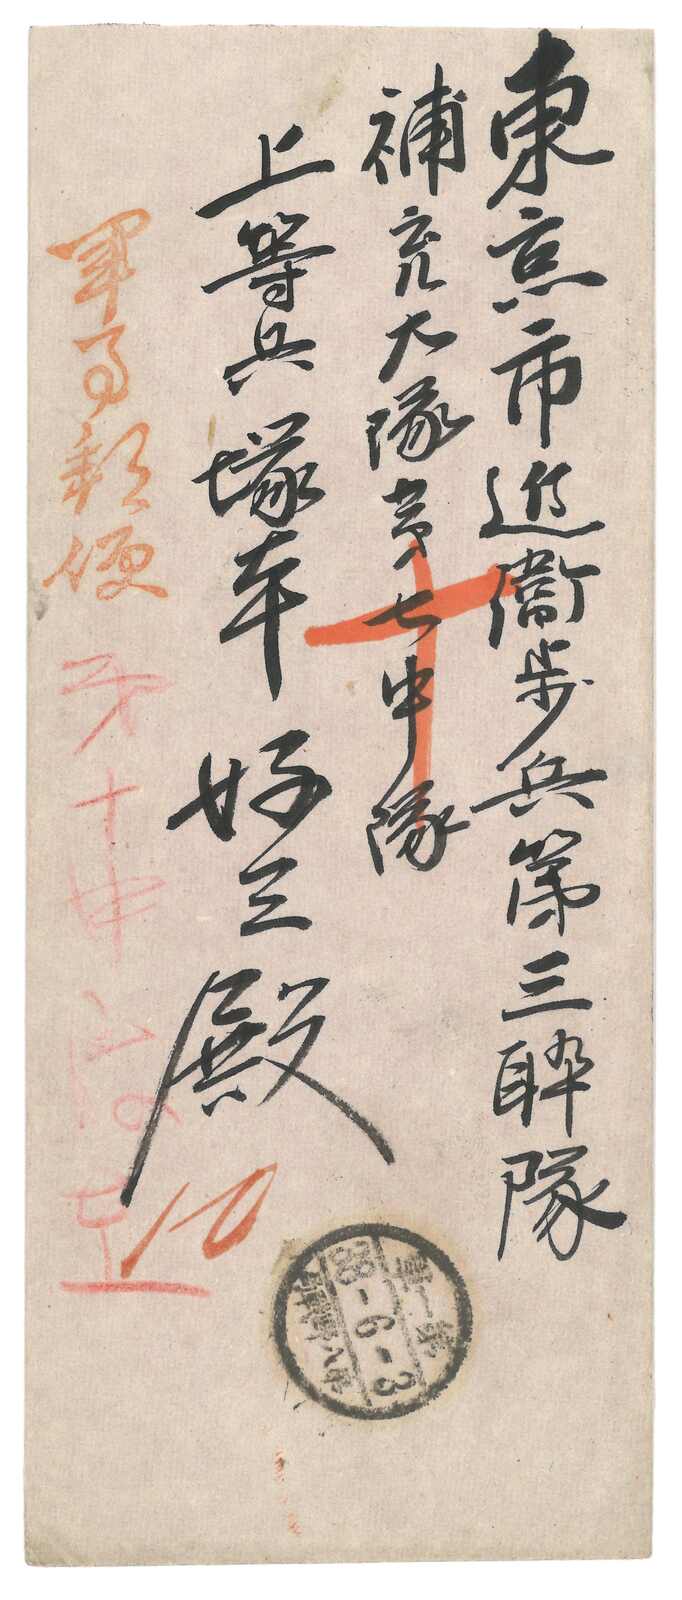 東京市近衛歩兵第三聯隊
補充大隊第七中隊
上等兵塚本好三殿
軍事郵便
才十中隊
10
38-6-3